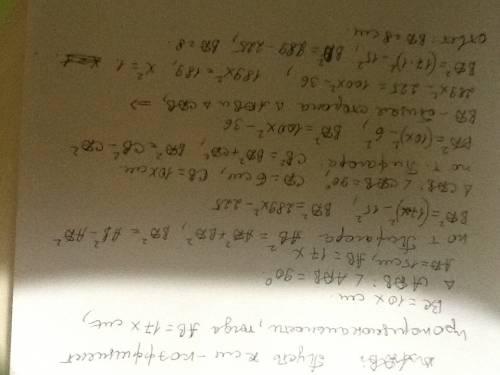 Δ ADB: Пусть x см - коэффициент
пропорциональности, тогда AB = 17x см,
BC = 10x см.
Δ ADB: ∠ADB = 90°
AD = 15 см, AB = 17x
по т. Пифагора AB² = AD² + BD², BD² = AB² - AD²
BD² = (17x)² - 15², BD² = 289x² - 225
Δ CDB: ∠CDB = 90°, CD = 6 см, CB = 10x см.
по т. Пифагора: CB² = BD² + CD², BD² = CB² - CD²
BD² = (10x)² - 6², BD² = 100x² - 36
BD - общая сторона Δ ADB и Δ CDB, ⇒
289x² - 225 = 100x² - 36, 189x² = 189, x² = 1
BD² = (17·1)² - 15², BD² = 289 - 225, BD = 8
Ответ: BD = 8 см